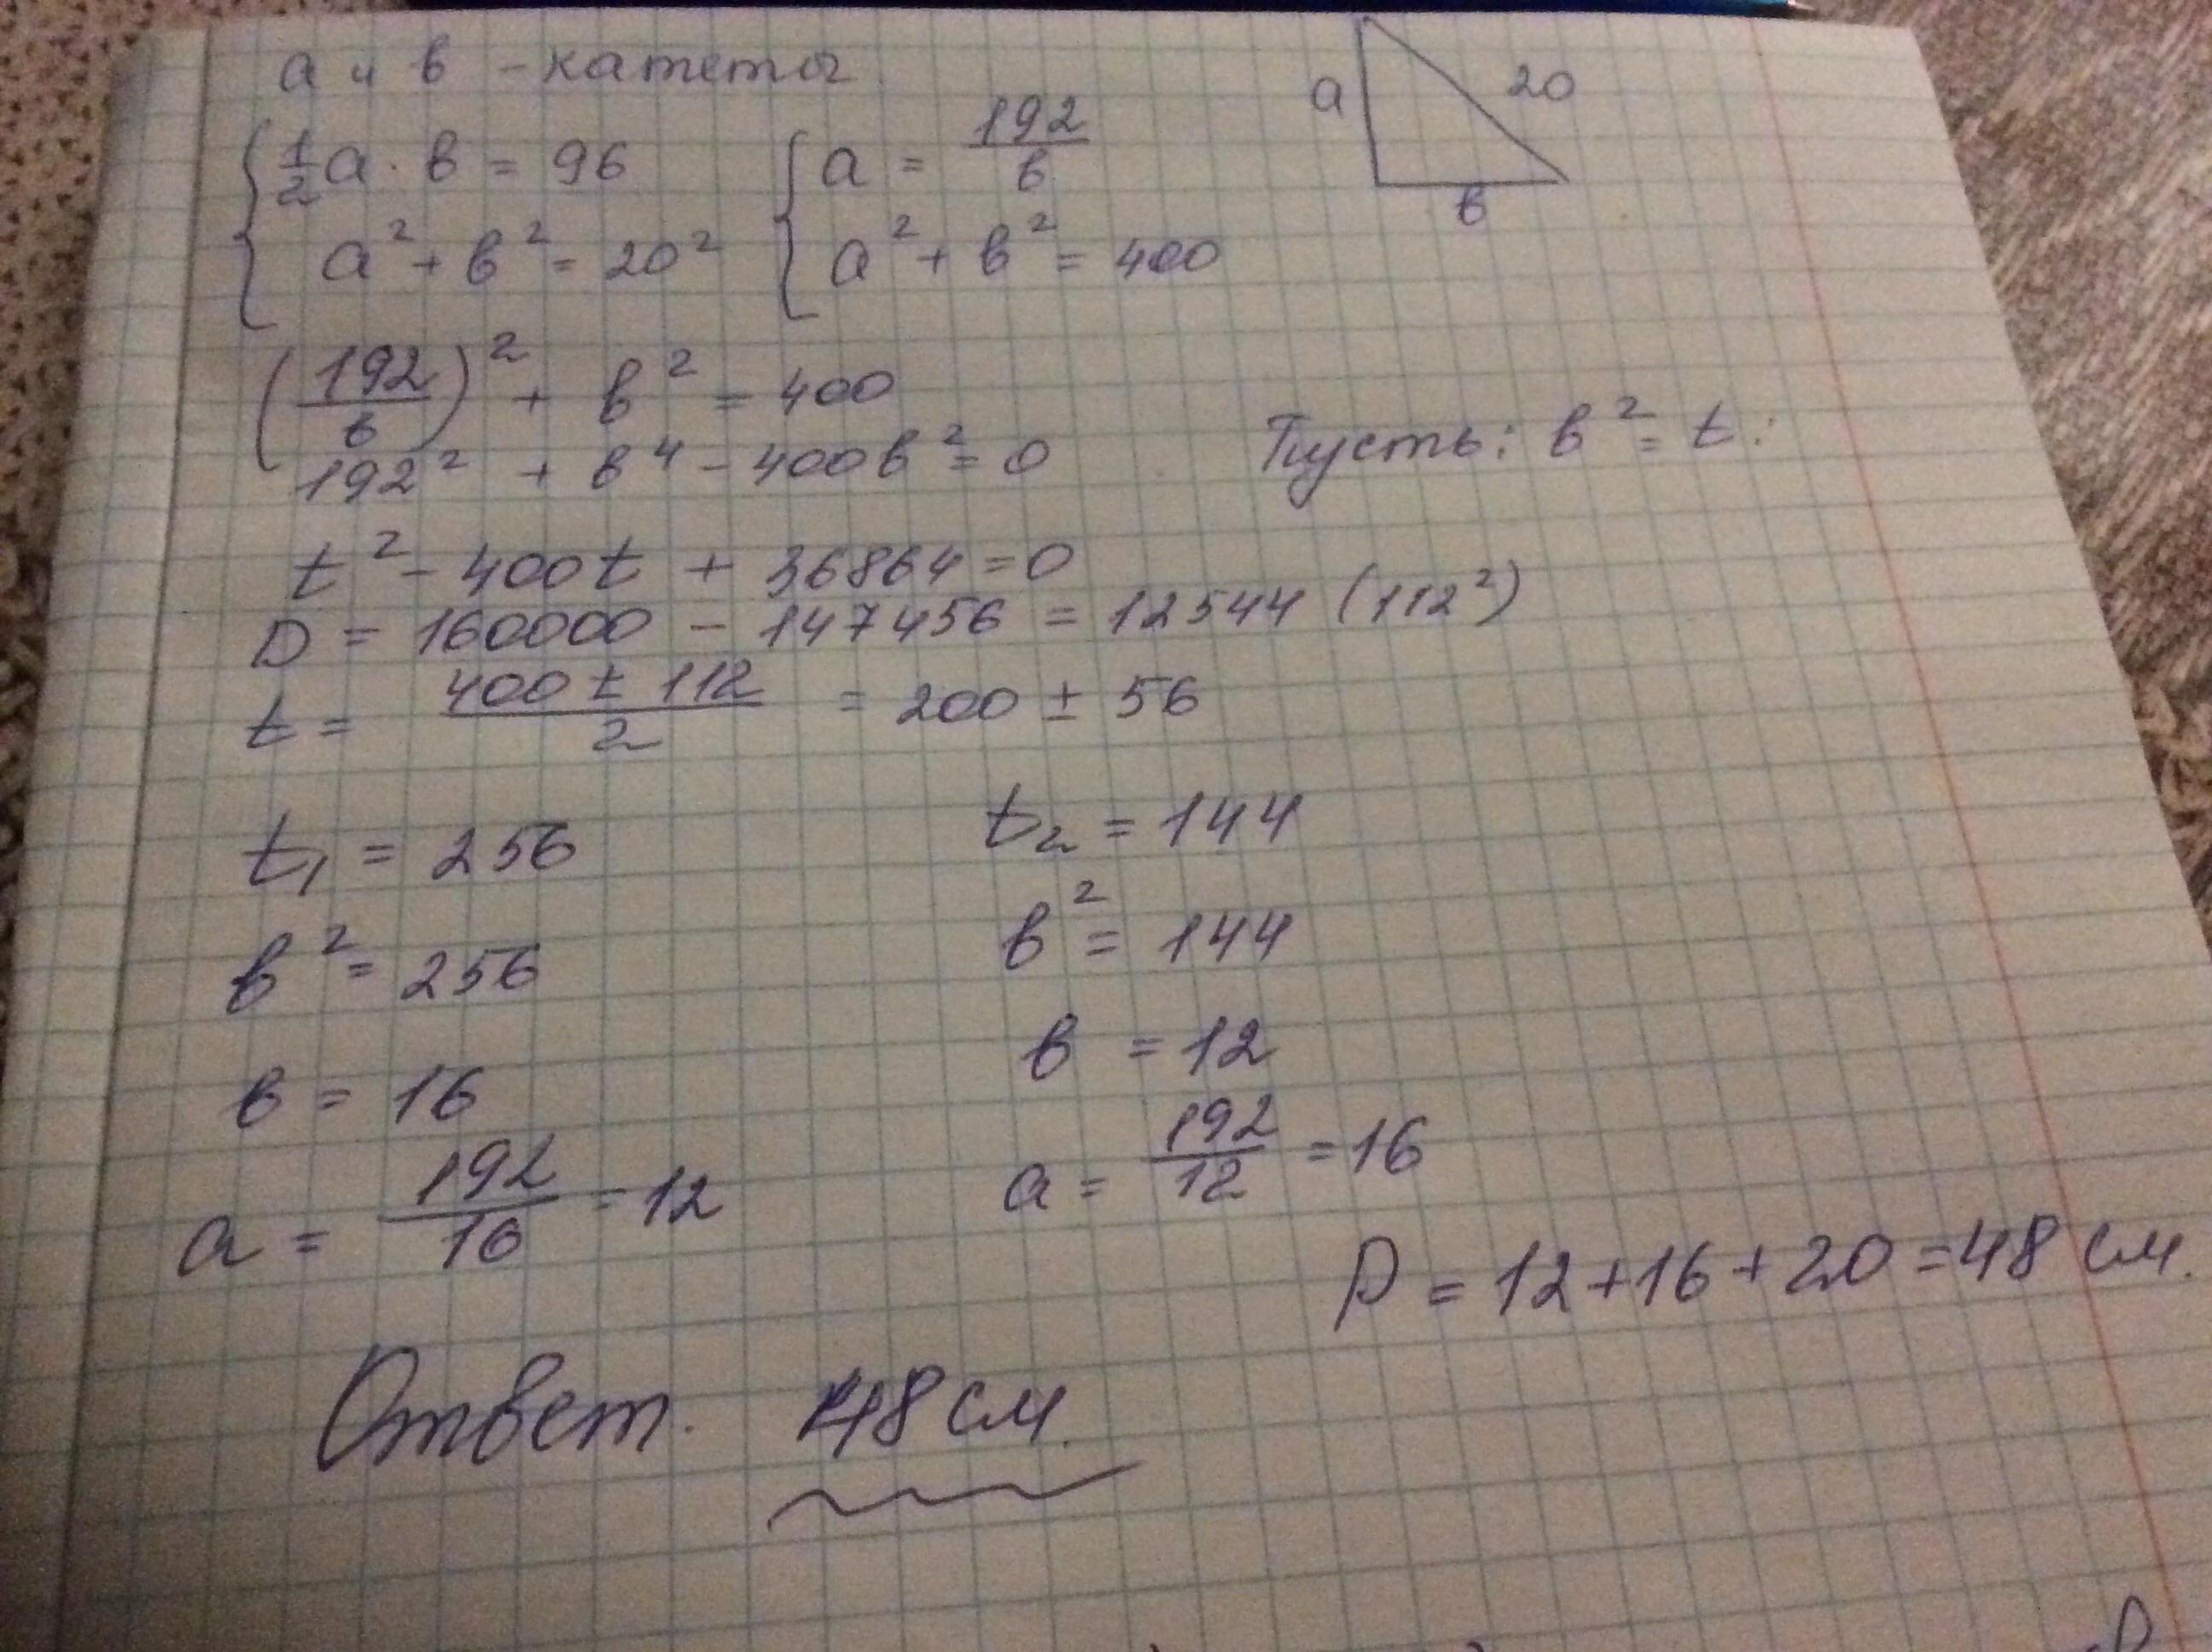 а и в - катеты
{ 1/2 а · в = 96 { а = 192/в
а² + в² = 20² а² + в² = 400
а 20
в
(192/в)² + в² = 400
192² + в⁴ - 400в² = 0 Пусть: в² = t:
t² - 400t + 36864 = 0
D = 160000 - 147456 = 12544 (112²)
t = (400 ± 112)/2 = 200 ± 56
t₁ = 256 t₂ = 144
в² = 256 в² = 144
в = 16 в = 12
а = 192/16 = 12 а = 192/12 = 16
P = 12 + 16 + 20 = 48 см.
Ответ. 48 см.